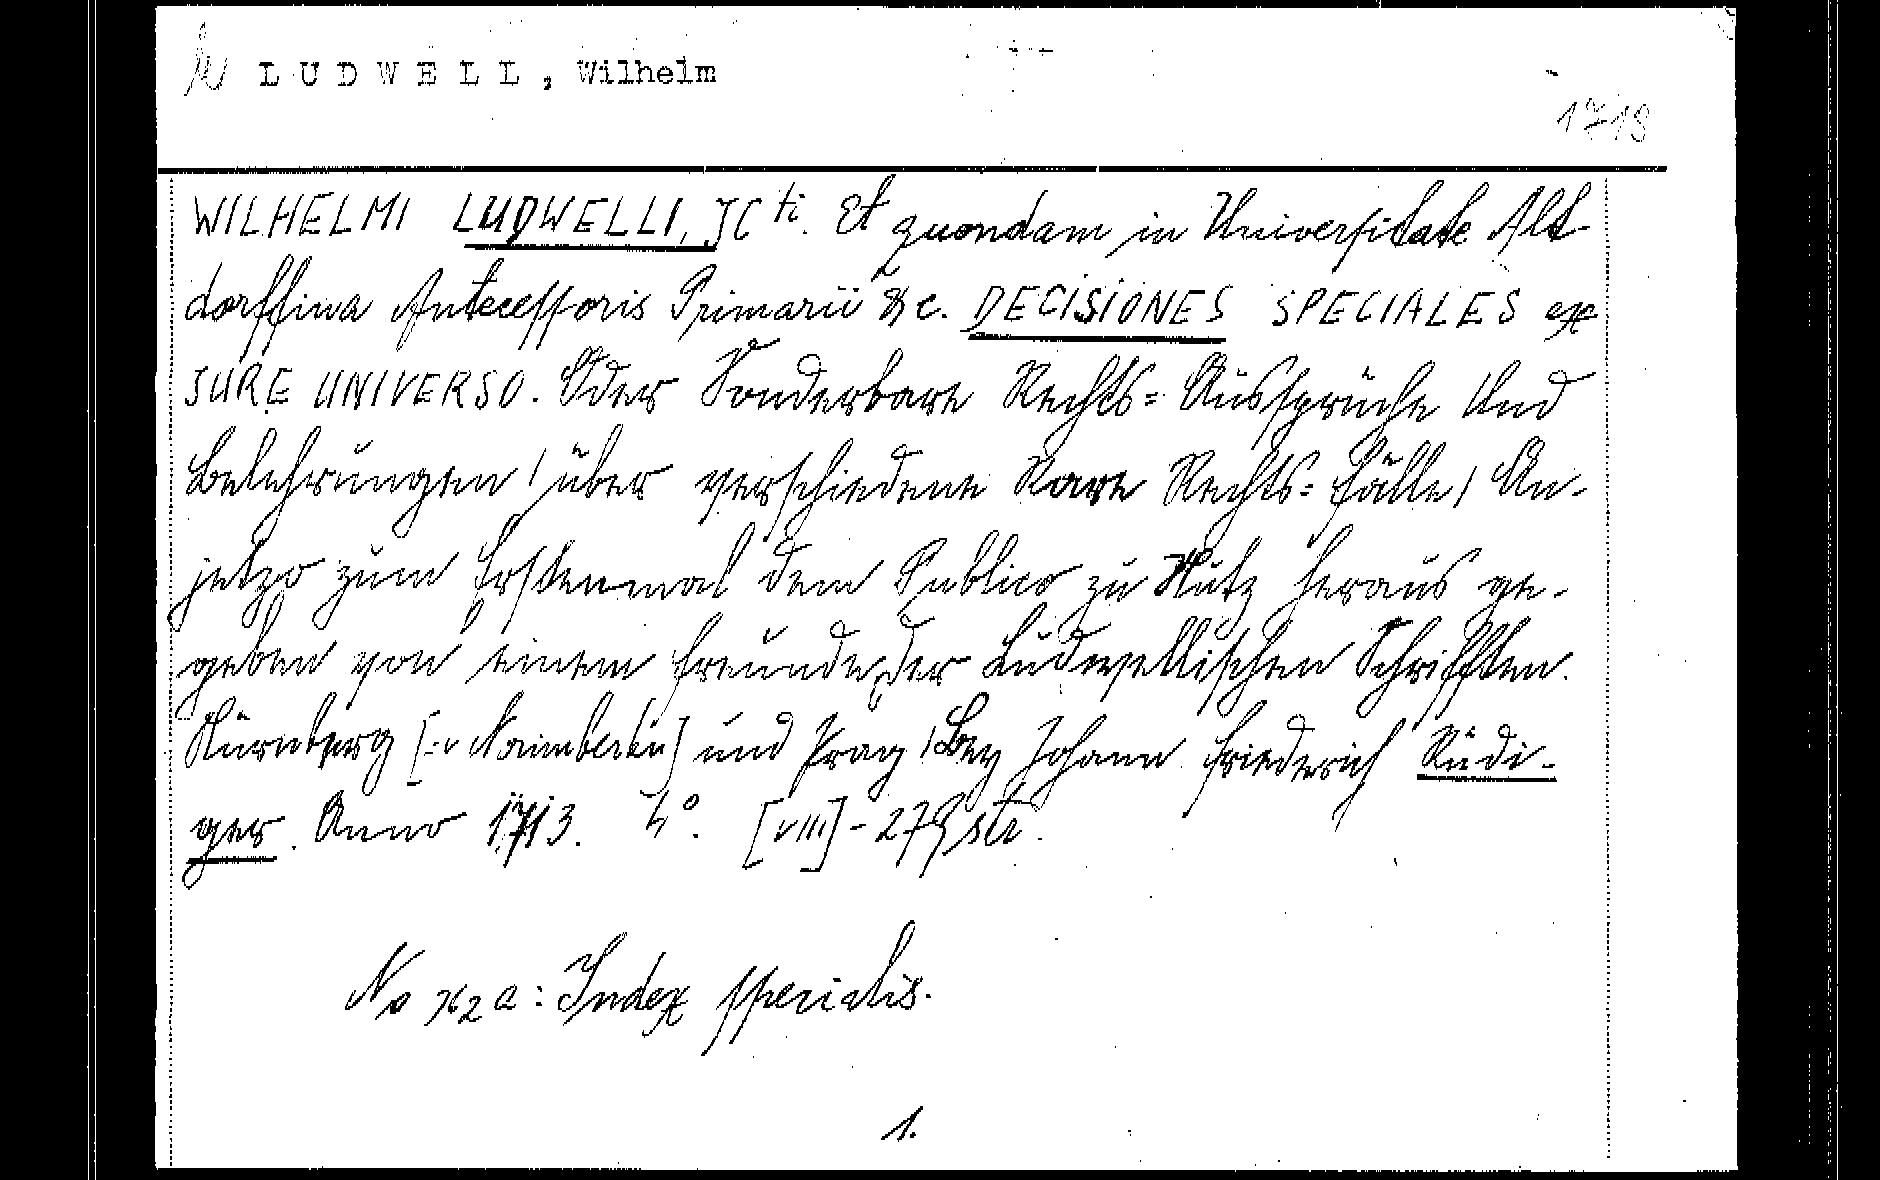 LUDWELL, Wilhelm
1713
WILHELMI LUDWELLI, JCti. Et quondam in Universitate Alt-
dorffina Antecessoris Primarii &c. DECISIONES SPECIALES ex
JURE UNIVERSO. Oder Sonderbare Rechts= Aussprüche Und
Belehrungen / über verschiedene Rare Rechts= Fälle / An-
jetzo zum Erstenmal dem Publico zu Nutz heraus ge-
geben von einem Freunde der Ludwellischen Schrifften.
Nürnberg [=v Norimberku] und Prag / Bey Johann Friederich Rüdi-
ger. Anno 1713. 4°. [VIII] - 279 str.
Na Kk2a: Index specialis.
1.